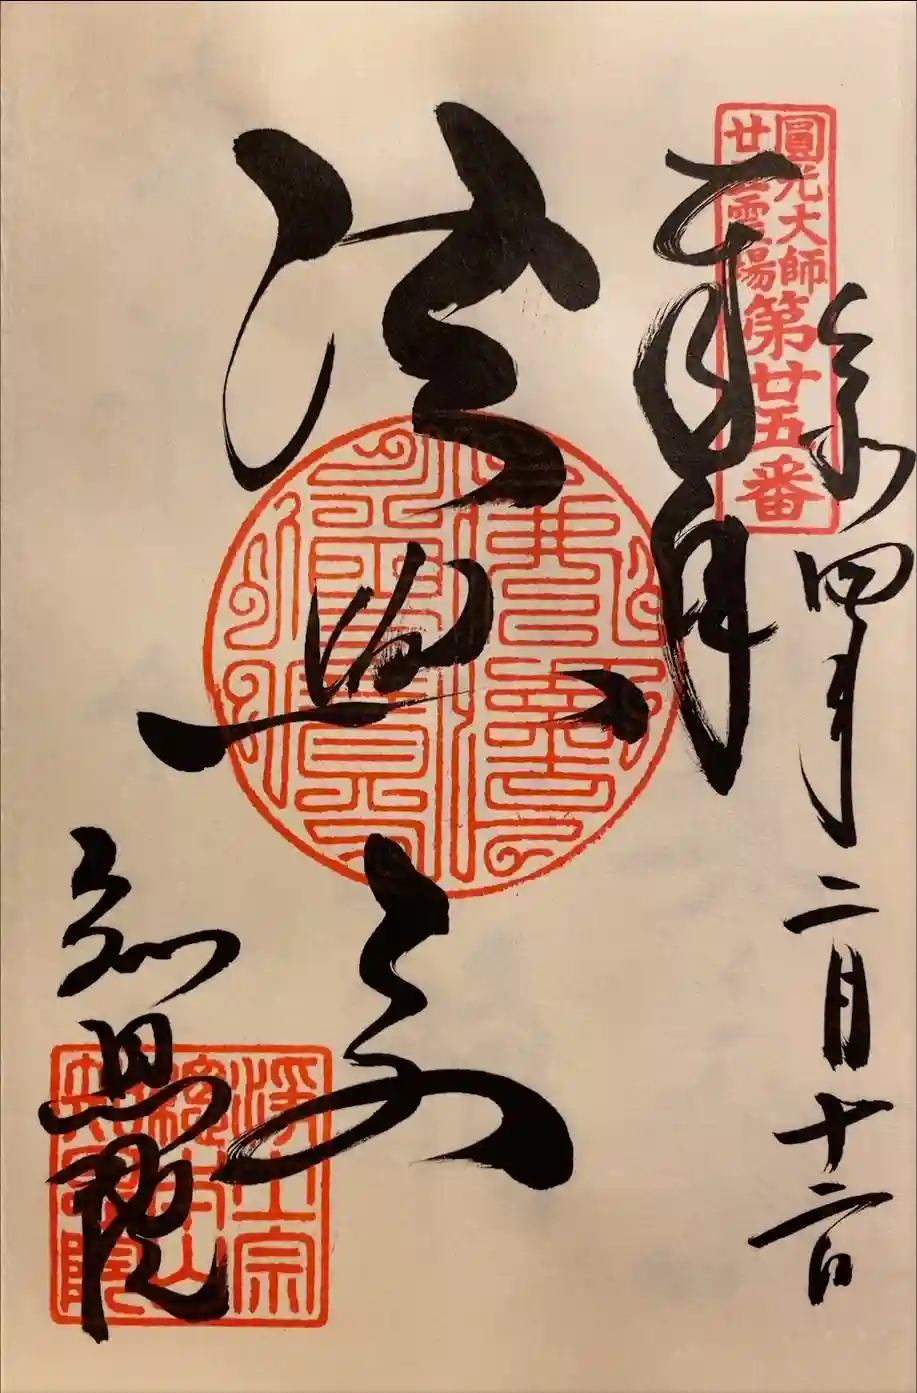 令和四年二月十二日
圓光大師
廿五霊場
第廿五番
奉拝
法然上人
知恩院
浄土宗
総本山
知恩院